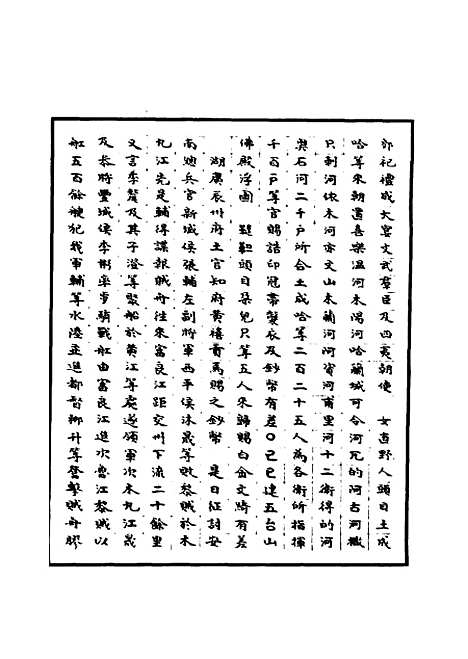 郊祀禮成大宴文武羣臣及四夷朝使　女直野人頭目土成
哈等來朝置喜樂溫河木陽河哈蘭城可令河兀的阿古河撒
只剌河依木河亦文山木蘭河阿資河甫里河十二衛得的河
奧石河二千戶所命土成哈等二百二十五人為各衛所指揮
千百戶等官賜誥印冠帶襲衣及鈔幣有差○己巳建五台山
佛殿浮圖　韃靼頭目朵兒只等五人來歸賜白金文綺有差
　湖廣辰州府土官知府黃禧貢馬賜之鈔幣　是日征討安
南總兵官新城侯張輔左副將軍西平侯沐晟等敗黎賊於木
九江先是輔得諜報賊舟往來富良江距交州下流二十餘里
又言季犛及其子澄等聚船於黃江等處遂領軍次木九江晟
及參將豐城侯李彬率步騎戰船由富良江進次魯江黎賊以
船五百餘艘犯我軍輔等水陸並進都督柳升等奮擊賊舟膠